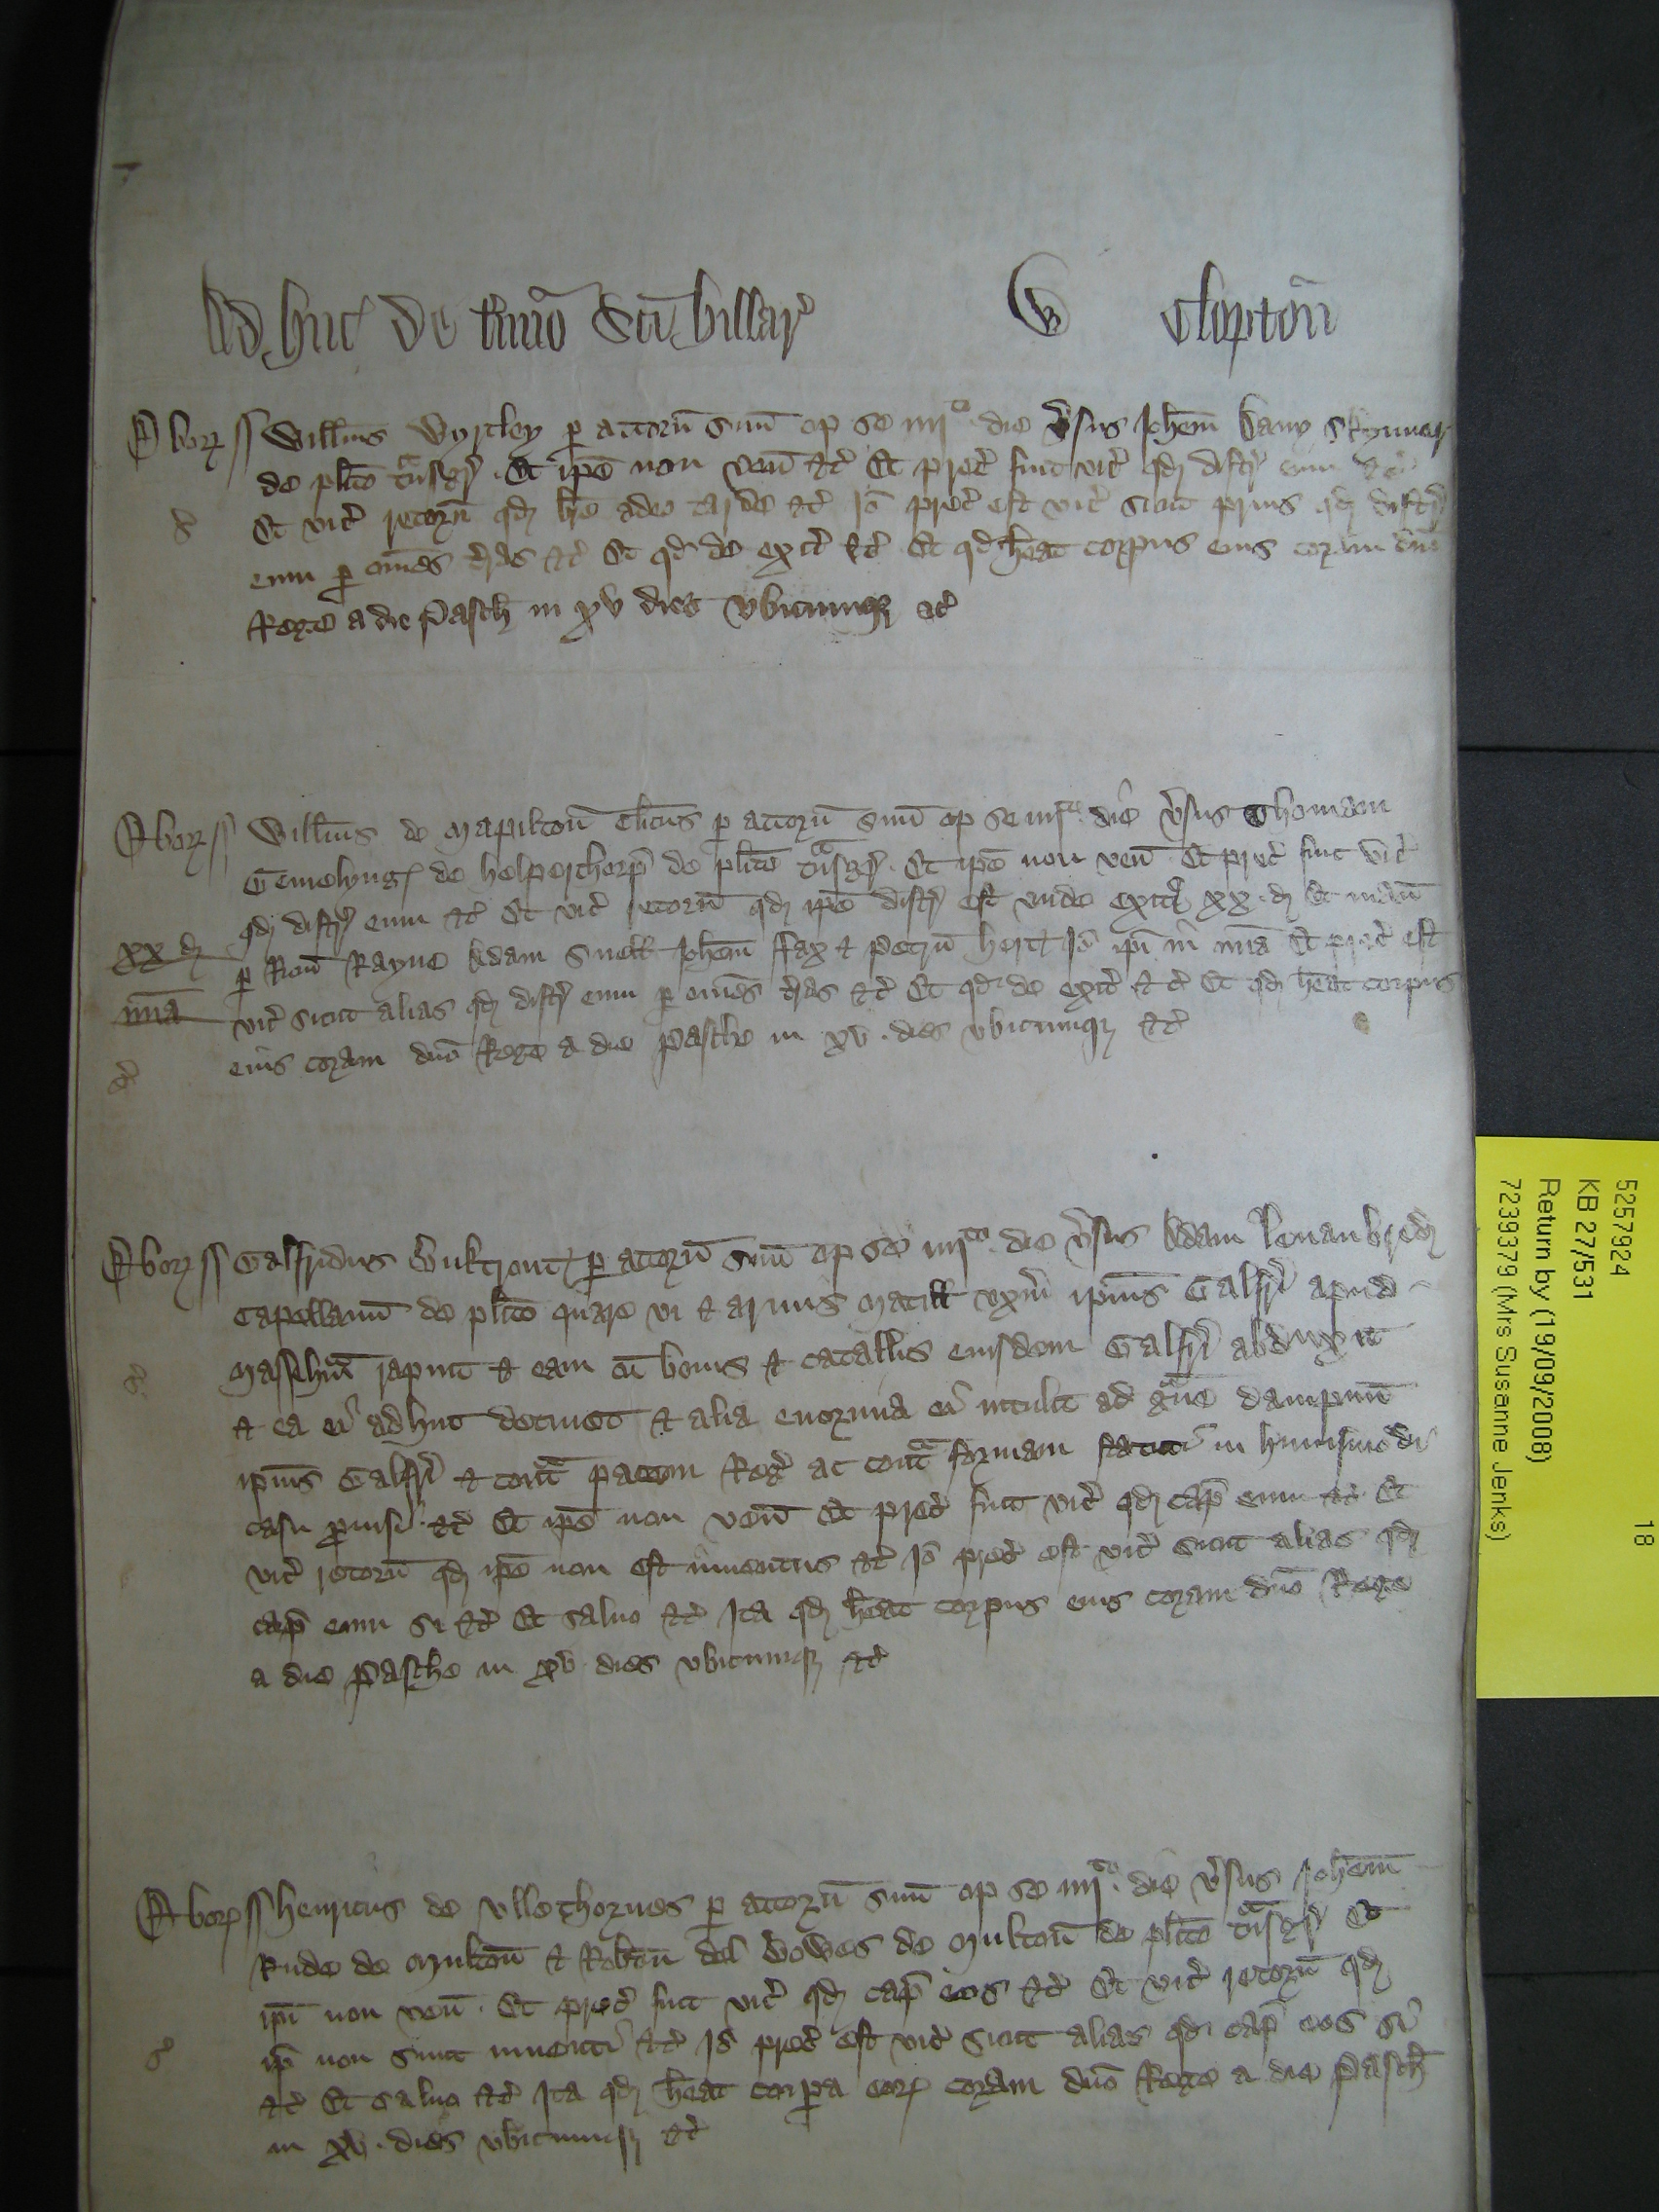 Adhuc de t'mino Sc̄i hillar' Clopton̄
Ebor' ss Will̄ms Wyrtley p attorn̄ suū op se iiijto die v'sus Joh̄em Dany Skynner
de pl̄ito tn̄sgr' Et ip̄e non ven̄ &c' Et prec' fuit vic' qd distr' eum &c'
Et vic' retorn̄ qd br̄e adeo tarde &c' Iō prec' est vic' sicut prius qd distr'
eum p om̄es t'ras &c' Et qd de exit' &c' Et qd h̄eat corpus eius coram dn̄o
Rege a die Pasch̄ in xv dies vbicumq &c'
Ebor' ss Will̄ms de Mapilton̄ cl̄icus p attorn̄ suū op se iiijto die v'sus Thomam
Gemelyng de Helperthorp de pl̄ito tn̄sgr' Et ip̄e non ven̄ Et prec' fuit vic'
qd distr' eum &c' Et vic' retorn̄ qd ip̄e distr' est vnde exit' xx d Et manū
xx d
p Ric̄m Rayne Adam Snell Joh̄em Fax & Petrū Hert Iō ip̄i in mīa Et prec' est
mīa
vic' sicut alias qd distr' eum p om̄es t'ras &c' Et qd de exit' &c' Et qd h̄eat corpus
eius coram dn̄o Rege a die Pasche in xv dies vbicumq &c'
Ebor' ss Galfridus Buktrout p attorn̄ suū op se iiijto die v'sus Adam
Capellanū de pl̄ito quare vi & armis Matill vxem ip̄ius Galfri apud
Masseham̄ rapuit & eam cū bonis & catallis eiusdem Galfri abduxit
& ea ei adhuc detinet & alia enormia ei intulit ad g̃ue dampnū
ip̄ius Galfri & cont̃ pacem Reg' ac cont̃ formam statuti in huiusmodi
casu p̄uisi &c' Et ip̄e non ven̄ Et prec' fuit vic' qd cap' eum &c' Et
vic' retorn̄ qd ip̄e non est inuentus &c' Iō prec' est vic' sicut alias qd
cap' eum si &c' Et saluo &c' Ita qd h̄eat corpus eius coram dn̄o Rege
a die Pasche in xv dies vbicumq &c'
Ebor' ss Henricus de Vllethornes p attorn̄ suū op se iiijto die v'sus Joh̄em
Rude de Multon̄ & Rob̄tum del Bowes de Multon̄ de pl̄ito tn̄sgr' Et
ip̄i non ven̄ Et prec' fuit vic' qd cap' eos &c' Et vic' retorn̄ qd
ip̄i non sunt inuenti &c' Iō prec' est vic' sicut alias qd cap' eos si
&c' Et saluo &c' Ita qd h̄eat corpa eor' coram dn̄o Rege a die Pasch̄
in xv dies vbicumq &c'
5257924 18
KB 27/531
Return by (19/09/2008)
7239379 (Mrs Susanne Jenks)